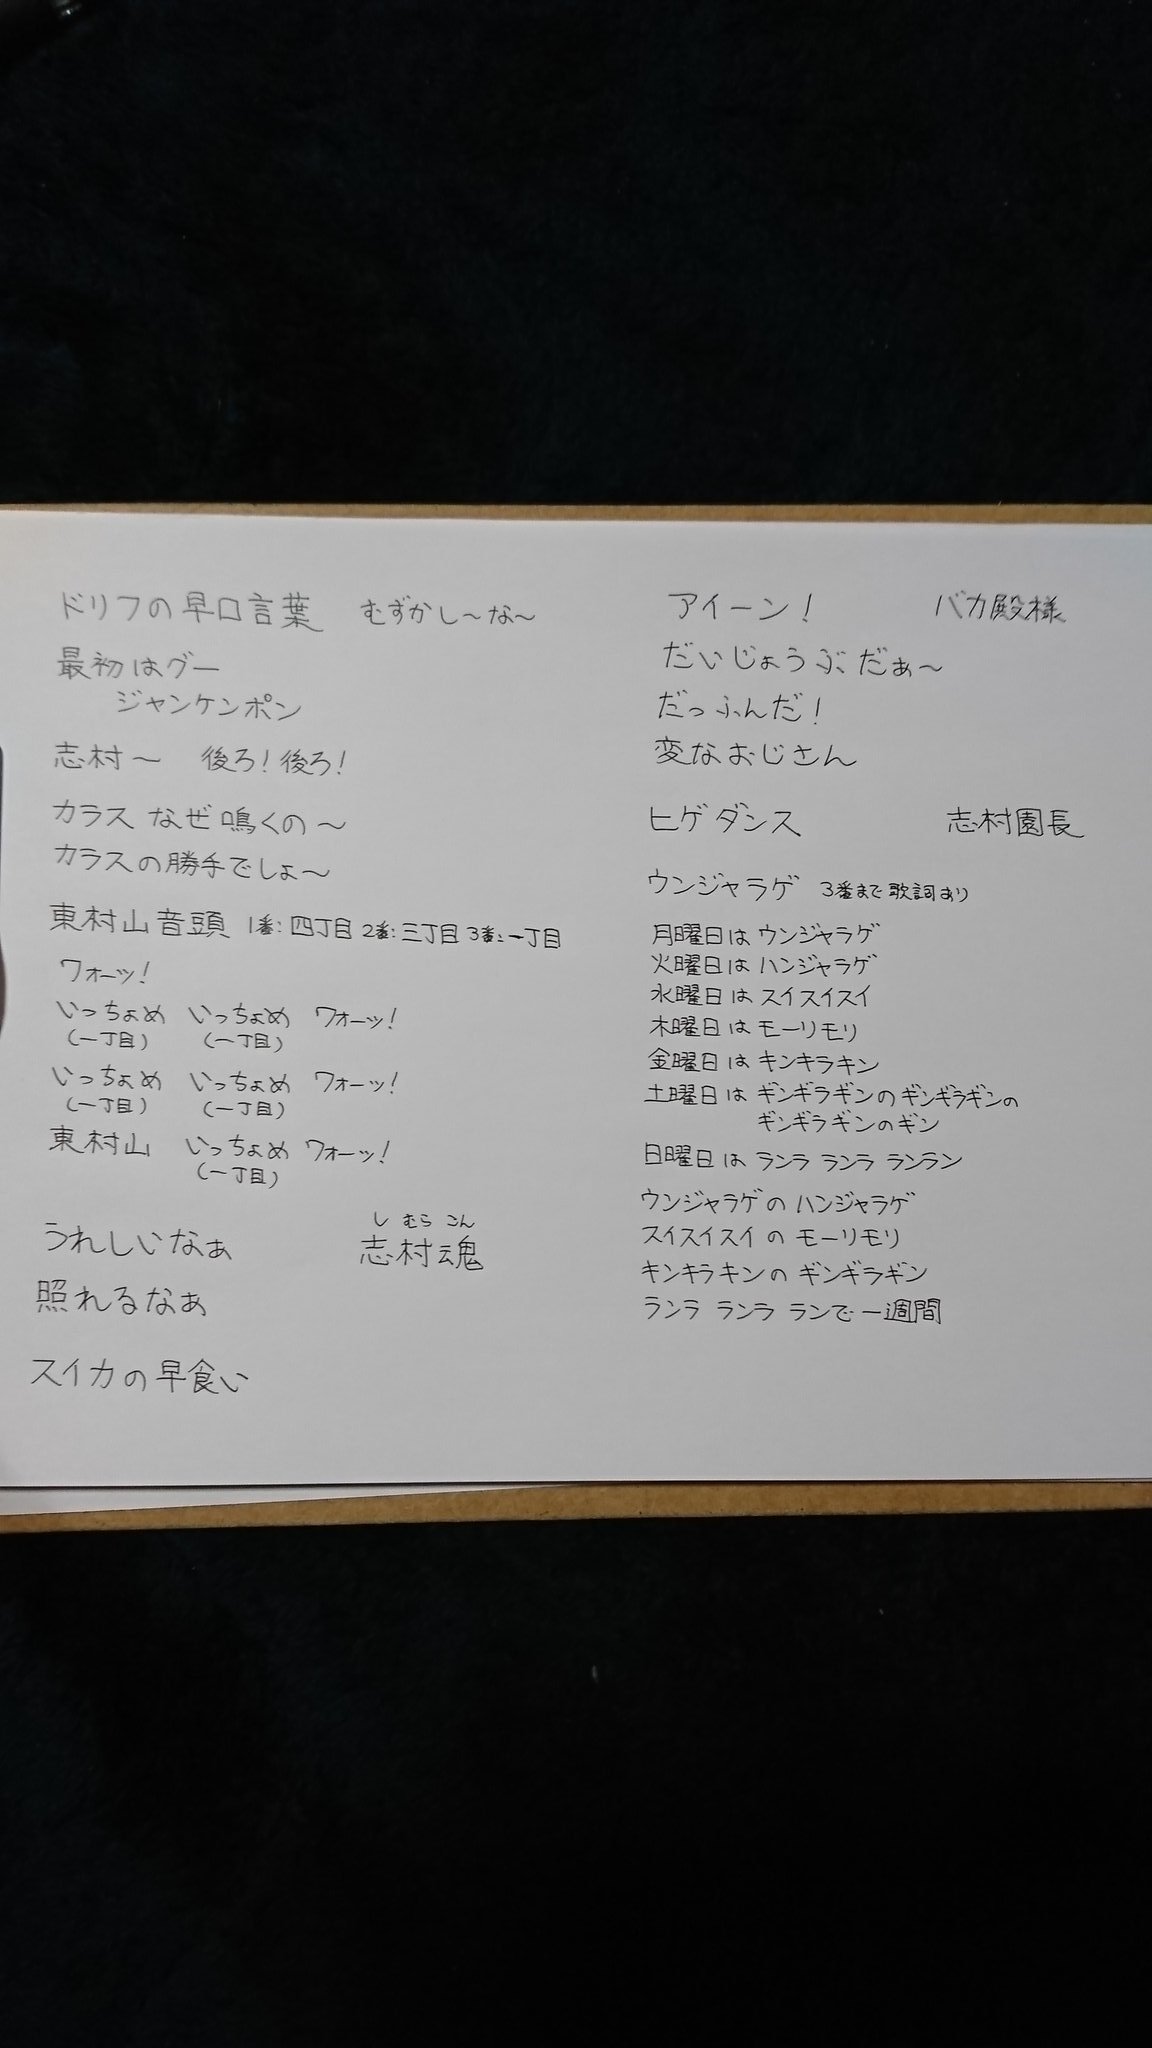 ドリフの早口言葉　むずかし〜な〜
最初はグー
ジャンケンポン
志村〜　後ろ！後ろ！
カラス なぜ鳴くの〜
カラスの勝手でしょ〜
東村山音頭 1番：四丁目 2番：三丁目 3番：一丁目
ワォーッ！
いっちょめ　いっちょめ　ワォーッ！
（一丁目）　（一丁目）
いっちょめ　いっちょめ　ワォーッ！
（一丁目）　（一丁目）
東村山　いっちょめ ワォーッ！
（一丁目）
うれしいなぁ
照れるなぁ
スイカの早食い
し むら こん
志村魂
アイーン！　バカ殿様
だいじょうぶだぁ〜
だっふんだ！
変なおじさん
ヒゲダンス　志村園長
ウンジャラゲ　3番まで歌詞あり
月曜日は ウンジャラゲ
火曜日は ハンジャラゲ
水曜日は スイスイスイ
木曜日は モーリモリ
金曜日は キンキラキン
土曜日は ギンギラギンの ギンギラギンの
ギンギラギンのギン
日曜日は ランラ ランラ ランラン
ウンジャラゲの ハンジャラゲ
スイスイスイの モーリモリ
キンキラキンの ギンギラギン
ランラ ランラ ランで 一週間